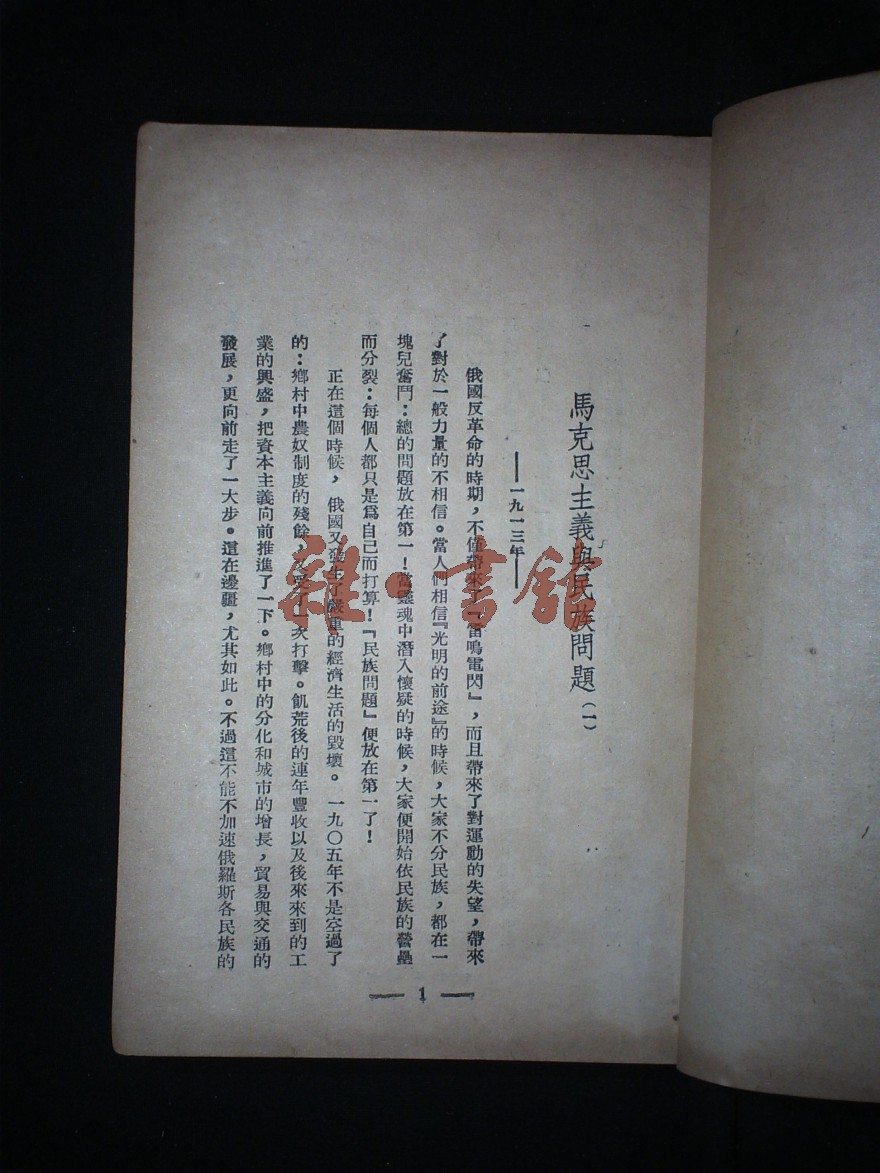 馬克思主義與民族問題(一)
——一九一三年——
俄國反革命的時期，不僅帶來了『雷鳴電閃』，而且帶來了對運動的失望，帶來
了對於一般力量的不相信。當人們相信『光明的前途』的時候，大家不分民族，都在一
塊兒奮鬥：總的問題放在第一！當靈魂中潛入懷疑的時候，大家便開始依民族的營壘
而分裂：每個人都只是爲自己而打算！『民族問題』便放在第一了！
正在這個時候，俄國又發生了嚴重的經濟生活的毀壞。一九〇五年不是空過了
的：鄉村中農奴制度的殘餘，又受了一次打擊。飢荒後的連年豐收以及後來來到的工
業的興盛，把資本主義向前推進了一下。鄉村中的分化和城市的增長，貿易與交通的
發展，更向前走了一大步。這在邊疆，尤其如此。不過這不能不加速俄羅斯各民族的
— 1 —
雜·書館